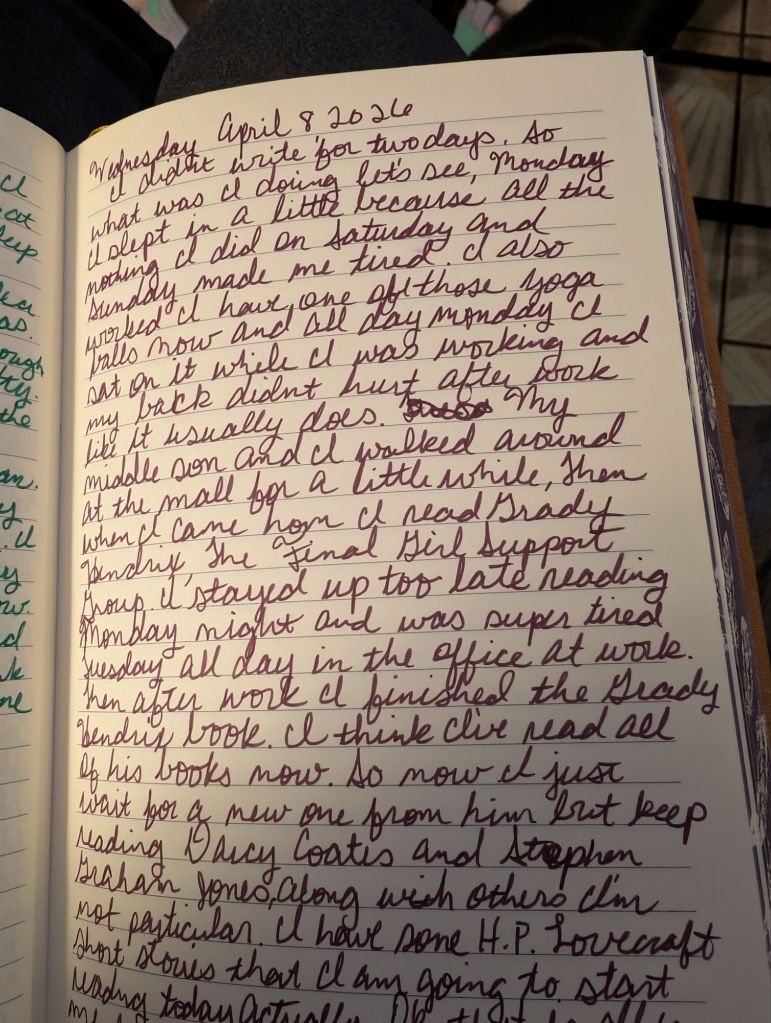 Wednesday April 8, 2026
I didn't write for two days. So
what was I doing let's see, Monday
I slept in a little because all the
nothing I did on Saturday and
Sunday made me tired. I also
worked I have one of those yoga
balls now and all day monday I
sat on it while I was working and
my back didn't hurt after work
like it usually does. My
middle son and I walked around
at the mall for a little while, then
when I came hom I read Grady
Hendrix, The Final Girl Support
Group. I stayed up too late reading
Monday night and was super tired
Tuesday all day in the office at work.
Then after work I finished the Grady
Hendrix book. I think I've read all
of his books now. So now I just
wait for a new one from him but keep
reading Darcy Coates and Stephen
Graham Jones, along with others I'm
not particular. I have some H.P. Lovecraft
short stories that I am going to start
reading today actually.
I
eat
eep
as.
ough
tty.
the
an.
y
. I
ey
ow.
d
k
ne